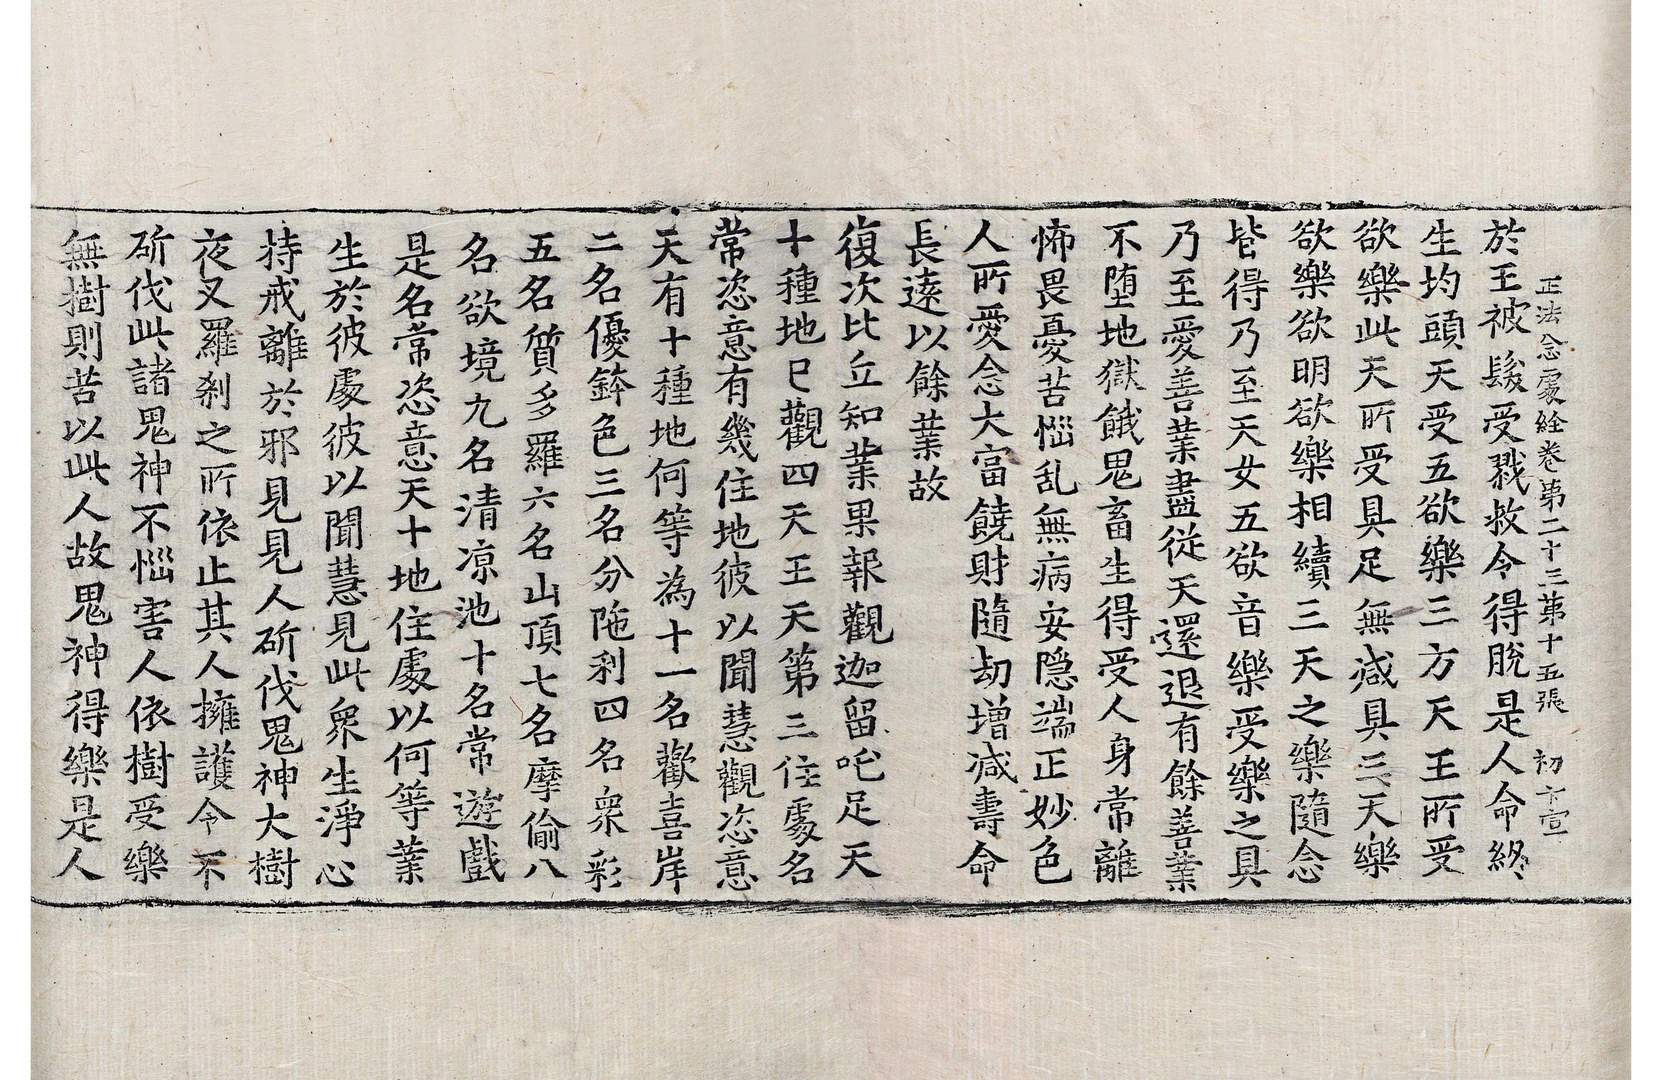 正法念處經卷第二十三第十五張 初 亠壹
於王被髮受戮救令得脫是人命終
生均頭天受五欲樂三方天王所受
欲樂此天所受具足無減具三天樂
欲樂欲明欲樂相續三天之樂隨念
皆得乃至天女五欲音樂受樂之具
乃至愛善業盡從天還退有餘善業
不堕地獄餓鬼畜生得受人身常離
怖畏憂苦惱乱無病安隠端正妙色
人所愛念大富饒財隨劫增減壽命
長遠以餘業故
復次比丘知業果報觀迦留吒足天
十種地已觀四天王天第三住處名
常恣意有幾住地彼以聞慧觀恣意
天有十種地何等為十一名歡喜岸
二名優鉢色三名分陁利四名衆彩
五名質多羅六名山頂七名摩偷八
名欲境九名清涼池十名常遊戲
是名常恣意天十地住處以何等業
生於彼處彼以聞慧見此衆生淨心
持戒離於邪見見人斫伐鬼神大樹
夜叉羅刹之所依止其人擁護令不
斫伐此諸鬼神不惱害人依樹受樂
無樹則苦以此人故鬼神得樂是人